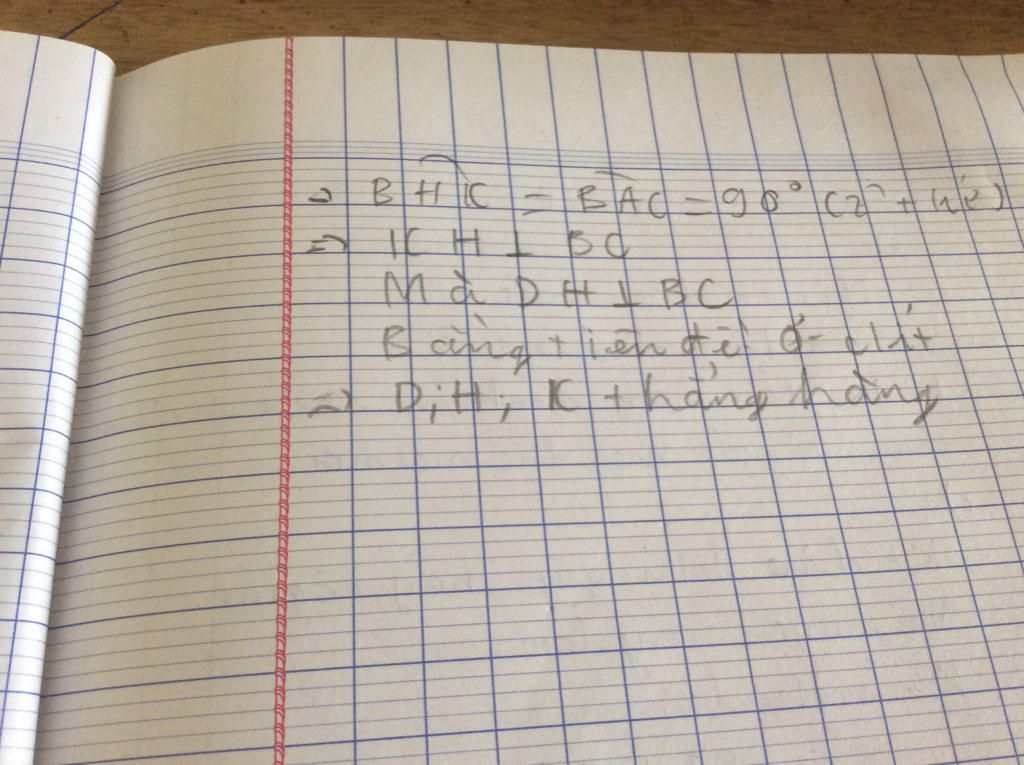 ⇒ BHK = BAC = 90° (2 t ứ)
⇒ KH ⊥ BC
Mà DH ⊥ BC
Bằng tiên đề Ơ-clít
⇒ D; H; K thẳng hàng